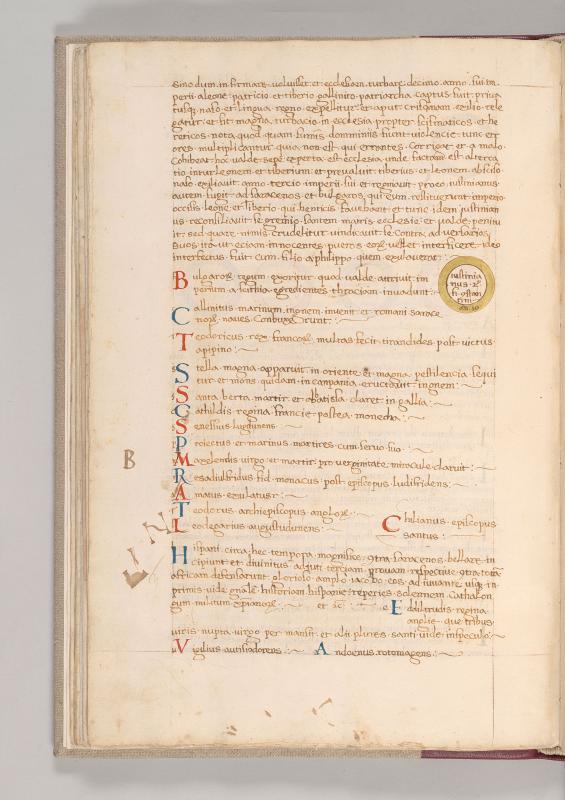 sino dum. in firmare. voluisset. et ecclesiam. turbare. decimo. anno. sui im
perii. a leone. patricio. et tiberio. gallinito. patriarcha. captus. fuit. priva
tusq. naso. et lingua. regno. expellitur. et aput. crisonam. exilio. rele
gatur. et fit. magna. turbacio. in ecclesia. propter. scismaticos. et he
reticos. nota. quod. quam. summis. domminiis. fiunt. violencie. tunc. err
ores. multiplicantur. quia. non. est. qui errantes. corrigat. et. a malo.
Cohibeat. hoc. valde. sepe. experta. est. ecclesia. unde. factum. est. alterca
tio. inter. leonem. et tiberium. et. prevaluit. tiberius. et leonem. absciso
naso. exiliavit. anno. tercio. imperii. sui. et regnavit. pro eo. iustinianus.
autem. fugit. ad saracenos. et bulgaros. qui. eum. restituerunt. imperio
occisis. leone. et tiberio. qui. hereticis. favebant. et tunc. idem. iustinian
us. reconsiliavit. se gremio. santem. matris. ecclesie. et. valde. penitu
it. sed. quare. nimis. crudeliter. vindicavit. se. contra. adversarios
suos. ita. ut. eciam. innocentes. pueros. eorum. vellet. interficere. ideo
interfectus. fuit. cum. filio. a philippo. quem. exulaverat:
Bulgarorum. regum. exoritur. quod. valde. attrivit. im
perium. a scithia. egredientes. thraciam. invadunt:
iustinia
nus. 2us
fi. ostan
tini
an. 10
Callinitus. marinum. ignem. invenit. et romani. sarace
norum. naves. Conbuxerunt:
Teodericus. rex. francorum. multas. fecit. tirandides. post. victus.
a pipino:
Stella. magna. apparuit. in oriente. et magna. pestilencia. sequi
tur. et mons. quidam. in campania. eructavit. ingnem:
Santa. berta. martir. et abbatisla. claret. in gallia:
Sathildis. regina. francie. postea. monecha:
Senessius. lugdunens
Proiectus. et marinus. martires. cum. servo. suo.
Maxelendis. virgo. et martir. pro. verginitate. miracule. claruit:
Resadiulfridus. fid. monacus. post. episcopus. lindisfridens:
Amatus. exulatusr:
Teodorus. archiepiscopus. anglorum:
Leodegarius. augustudunens:
Chilianus. episcopus
santus:
B
L I N
Hispani. circa. hec. tempora. magnifice. contra. saracenos. bellare. in
cipiunt. et divinitus. adiuti. terciam. provam. respective. contra. totam
affricam. defensarunt. glorioso. amplo. iacobo. eos. adiuvante. usque. in
primis. vide. gnale. historiam. hispanie. reperies. solennem. cathalon
gum. militum. xpianorum. et ac
Edaldrudis. regina.
anglie. que. tribus.
viris. nupta. virgo. per mansit. et alii. plures. santi. vide. in speculo:
Vigilius. autisiodorens:
Andoenus. rotomagens: